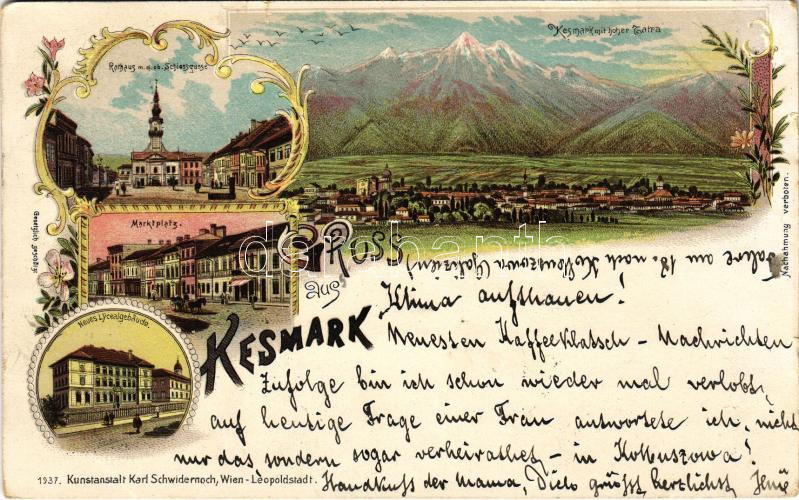 Kesmark mit hoher Tatra
Rathaus m. d. ob. Schlossgasse
Marktplatz.
Gesetzlich geschützt
Gruss
aus
Kesmark
Neues Lycealgebäude.
Nachahmung verboten.
darabanth.com
Fahre am 18. nach Kolbuszowa (Galizien)
Klima aufthauen!
Neuesten Kaffeeklatsch - Nachrichten
Zufolge bin ich schon wieder mal verlobt,
auf heutige Frage einer Frau antwortete ich, nicht
nur das sondern sogar verheirathet - in Kolbuszowa!
Handkuss der Mama, Dich grüsst herzlichst
1937. Kunstanstalt Karl Schwidernoch, Wien - Leopoldstadt.